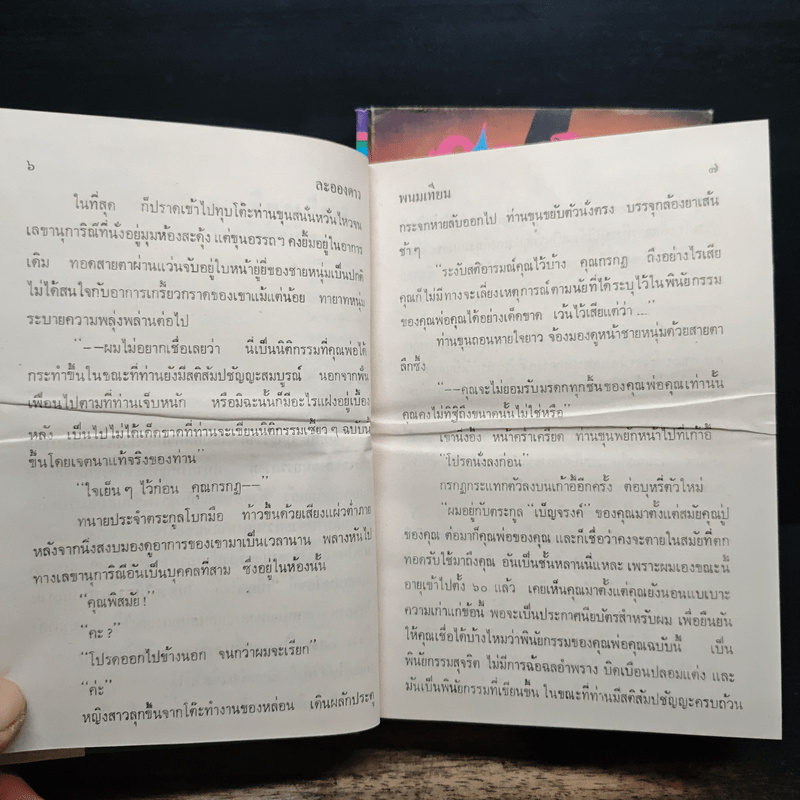 ๖
ละอองดาว
ในที่สุด ก็ปราดเข้าไปทุบโต๊ะท่านขุนสนั่นหวั่นไหวจน
เลขานุการิณีที่นั่งอยู่มุมห้องสะดุ้ง แต่ขุนอรรถฯ คงยิ้มอยู่ในอาการ
เดิม ทอดสายตาผ่านแว่นจับอยู่ใบหน้ายู่ยี่ของชายหนุ่มเป็นปกติ
ไม่ได้สนใจกับอาการเกรี้ยวกราดของเขาแม้แต่น้อย ทายาทหนุ่ม
ระบายความพลุ่งพล่านต่อไป
"--ผมไม่อยากเชื่อเลยว่า นี่เป็นนิติกรรมที่คุณพ่อได้
กระทำขึ้นในขณะที่ท่านยังมีสติสัมปชัญญะสมบูรณ์ นอกจากฟั่น
เฟือนไปตามที่ท่านเจ็บหนัก หรือมิฉะนั้นก็มีอะไรแฝงอยู่เบื้อง
หลัง เป็นไปไม่ได้เด็ดขาดที่ท่านจะเขียนนิติกรรมเซี้ยว ๆ ฉบับนี้
ขึ้นโดยเจตนาแท้จริงของท่าน"
"ใจเย็น ๆ ไว้ก่อน คุณกรกฎ--"
ทนายประจำตระกูลโบกมือ ท้าวขึ้นด้วยเสียงแผ่วต่ำภาย
หลังจากนิ่งสงบมองดูอาการของเขามาเป็นเวลานาน พลางหันไป
ทางเลขานุการิณีอันเป็นบุคคลที่สาม ซึ่งอยู่ในห้องนั้น
"คุณพิสมัย!"
"คะ?"
"โปรดออกไปข้างนอก จนกว่าผมจะเรียก"
"ค่ะ"
หญิงสาวลุกขึ้นจากโต๊ะทำงานของหล่อน เดินผลักประตู
พนมเทียน
๗
กระจกหายลับออกไป ท่านขุนขยับตัวนั่งตรง บรรจุกล้องยาเส้น
ช้า ๆ
"ระงับสติอารมณ์คุณไว้บ้าง คุณกรกฎ ถึงอย่างไรเสีย
คุณก็ไม่มีทางจะเลี่ยงเหตุการณ์ตามนัยที่ได้ระบุไว้ในพินัยกรรม
ของคุณพ่อคุณได้อย่างเด็ดขาด เว้นไว้เสียแต่ว่า ..."
ท่านขุนถอนหายใจยาว จ้องมองดูหน้าชายหนุ่มด้วยสายตา
ลึกซึ้ง
"--คุณจะไม่ยอมรับมรดกทุกชิ้นของคุณพ่อคุณเท่านั้น
คุณคงไม่ทิฐิถึงขนาดนั้นไม่ใช่หรือ"
เขานิ่งอึ้ง หน้าคร่ำเครียด ท่านขุนพยักหน้าไปที่เก้าอี้
"โปรดนั่งลงก่อน"
กรกฎกระแทกตัวลงบนเก้าอี้อีกครั้ง ต่อบุหรี่ตัวใหม่
"ผมอยู่กับตระกูล "เบ็ญจรงค์" ของคุณมาตั้งแต่สมัยคุณปู่
ของคุณ ต่อมาก็คุณพ่อของคุณ และก็เชื่อว่าคงจะตายในสมัยที่ตก
ทอดรับใช้มาถึงคุณ อันเป็นชั้นหลานนี่แหละ เพราะผมเองขณะนี้
อายุเข้าไปตั้ง ๖๐ แล้ว เคยเห็นคุณมาตั้งแต่คุณยังนอนแบเบาะ
ความเก่าแก่ข้อนี้ พอจะเป็นประกาศนียบัตรสำหรับผม เพื่อยืนยัน
ให้คุณเชื่อได้บ้างไหมว่าพินัยกรรมของคุณพ่อคุณฉบับนี้ เป็น
พินัยกรรมสุจริต ไม่มีการฉ้อฉลอำพราง บิดเบือนปลอมแต่ง และ
มันเป็นพินัยกรรมที่เขียนขึ้น ในขณะที่ท่านมีสติสัมปชัญญะครบถ้วน